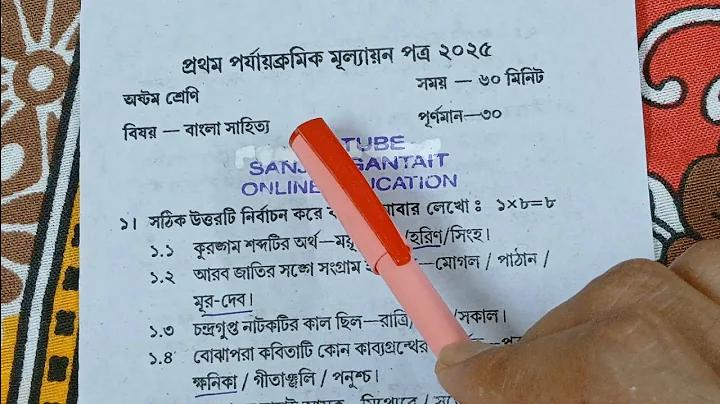 প্রথম পর্যায়ক্রমিক মূল্যায়ন পত্র ২০২৫
অষ্টম শ্রেণি
সময় — ৬০ মিনিট
বিষয় — বাংলা সাহিত্য
পূর্ণমান—৩০
TUBE
SANJ GANTAIT
ONLINE EDUCATION
১। সঠিক উত্তরটি নির্বাচন করে আবার লেখো ঃ ১×৮=৮
১.১ কুরঙ্গম শব্দটির অর্থ—ময়ূ /হরিণ/সিংহ।
১.২ আরব জাতির সঙ্গে সংগ্রাম —মোগল / পাঠান /
মূর-দেব।
১.৩ চন্দ্রগুপ্ত নাটকটির কাল ছিল—রাত্রি/ /সকাল।
১.৪ বোঝাপরা কবিতাটি কোন কাব্যগ্রন্থের
ক্ষনিকা / গীতাঞ্জলি / পনুশ্চ।